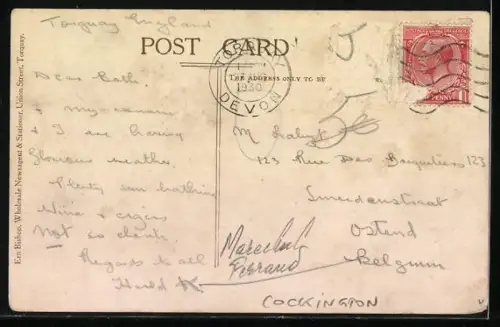 Torquay England
POST CARD
THE ADDRESS ONLY TO BE
TORQUAY
1930
DEVON
PENNY
Dear Bath.
My cousin
& I are having
Glorious weather.
Plenty sun bathing
Wine & cigars
Not so cheap.
Regards to all
Harold
M
123 Rue Des 123
Ostend
Belgium
COCKINGTON
Ern Bishop, Wholesale Newsagent & Stationer, Union Street, Torquay.